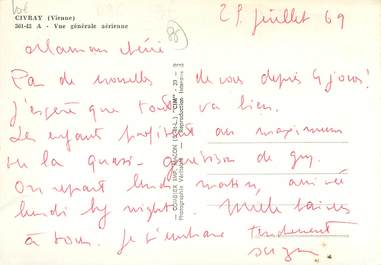 CIVRAY (Vienne)
361-43 A - Vue générale aérienne
29 juillet 69
Maman chérie
Pas de nouvelles de vous depuis 4 jours!
j'espère que tout va bien.
Les enfants profitent au maximum
de la quasi-guérison de guy.
On repart lundi matin, arrivée
lundi by night. Mille baisers
à tous. je t'embrasse tendrement
COMBIER IMP. MÂCON (S.-et-L.) "CIM"
Photographie Véritable - Reproduction Interdite